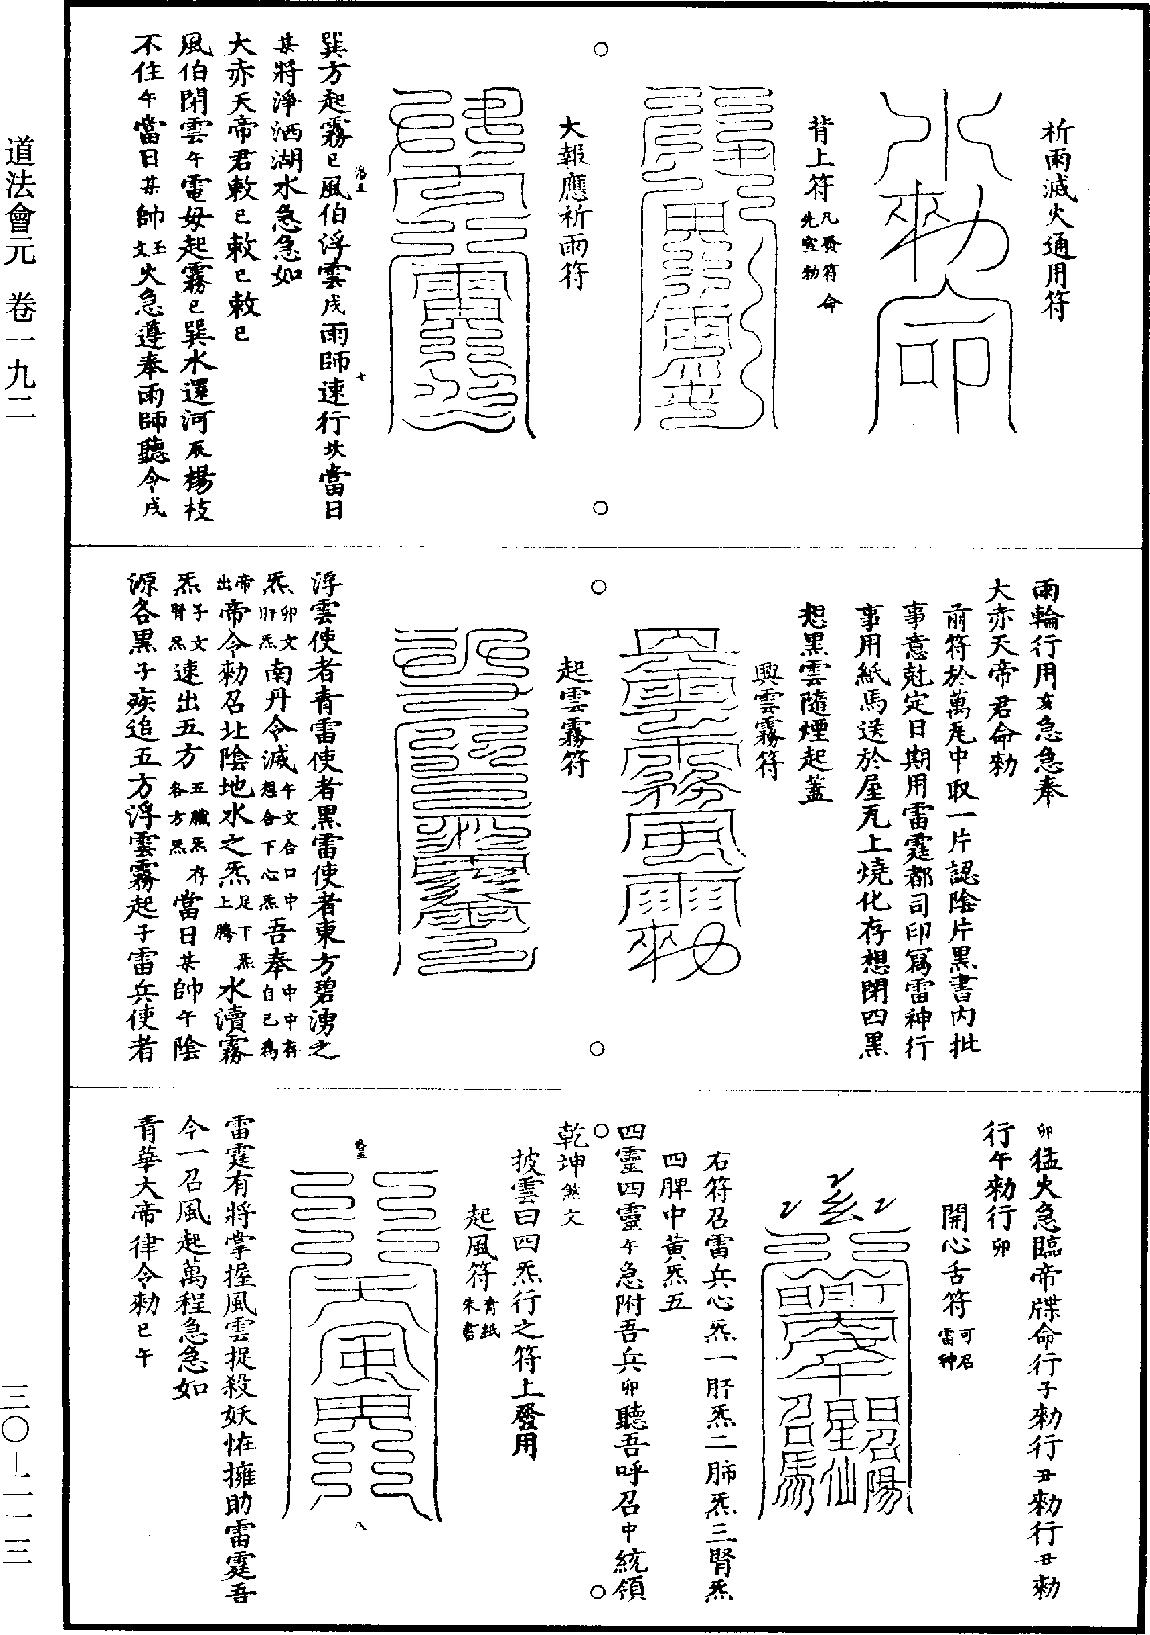 道法會元　卷一九二
三〇—二一三
祈雨滅火通用符
水
勑
命
背上符凡發符命先盝勑
大報應祈雨符
巽方起霧巳風伯浮雲戌雨師速行坎當日
某將淨洒湖水急急如
大赤天帝君敕巳敕巳敕巳
風伯閉雲午電母起霧巳巽水還河辰楊枝
不住午當日某帥玉文火急遵奉雨師聽令戌
雨輪行用亥急急奉
大赤天帝君命勑
前符於萬瓦中取一片認陰片黑書內批
事意尅定日期用雷霆都司印寫雷神行
事用紙馬送於屋瓦上燒化存想閉四黑
想黑雲隨煙起蓋
興雲霧符
起雲霧符
浮雲使者青雷使者黑雷使者東方碧湧之
炁卯文肝炁南丹令滅午文合口中想舍下心炁吾奉中中存自己為
帝出帝令勑召北陰地水之炁足下炁上騰水瀆霧
炁子文腎炁速出五方五臟炁存各方炁當日某帥午陰
源各黑子疾追五方浮雲霧起子雷兵使者
卯猛火急臨帝牒命行子勑行丑勑行丑勑
行午勑行卯
開心舌符可召雷神
右符召雷兵心炁一肝炁二肺炁三腎炁
四脾中黃炁五
四靈四靈午急附吾兵卯聽吾呼召中統領
乾坤煞文
披雲曰四炁行之符上發用
起風符青紙朱書
雷霆有將掌握風雲捉殺妖怪擁助雷霆吾
今一召風起萬程急急如
青華大帝律令勑巳午